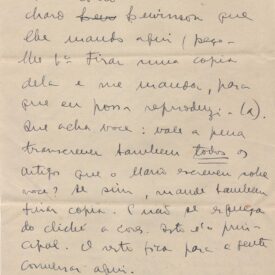 chard Lewinsohn que
lhe mando aqui (peço-
lhe p.ª tirar uma copia
dela e me mandar, para
que eu possa reproduzi-la).
Que acha você: vale a pena
transcrever tambem todos os
artigos que o Mario escreveu sobre
voce? Se sim, mande tambem
tirar copia. E não se esqueça
do cliché a cores. Isto é o prin-
cipal. O resto fica para a gente
conversar aqui.